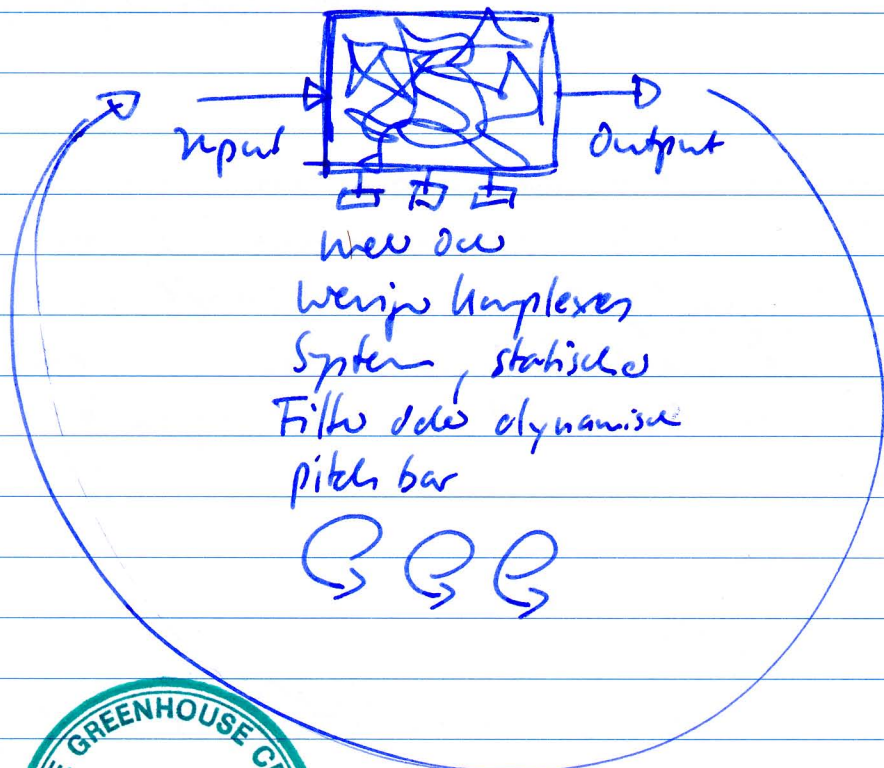 Input
Output
mehr oder
weniger komplexes
System, statische
Filter oder dynamisch
pitch bar
GREENHOUSE